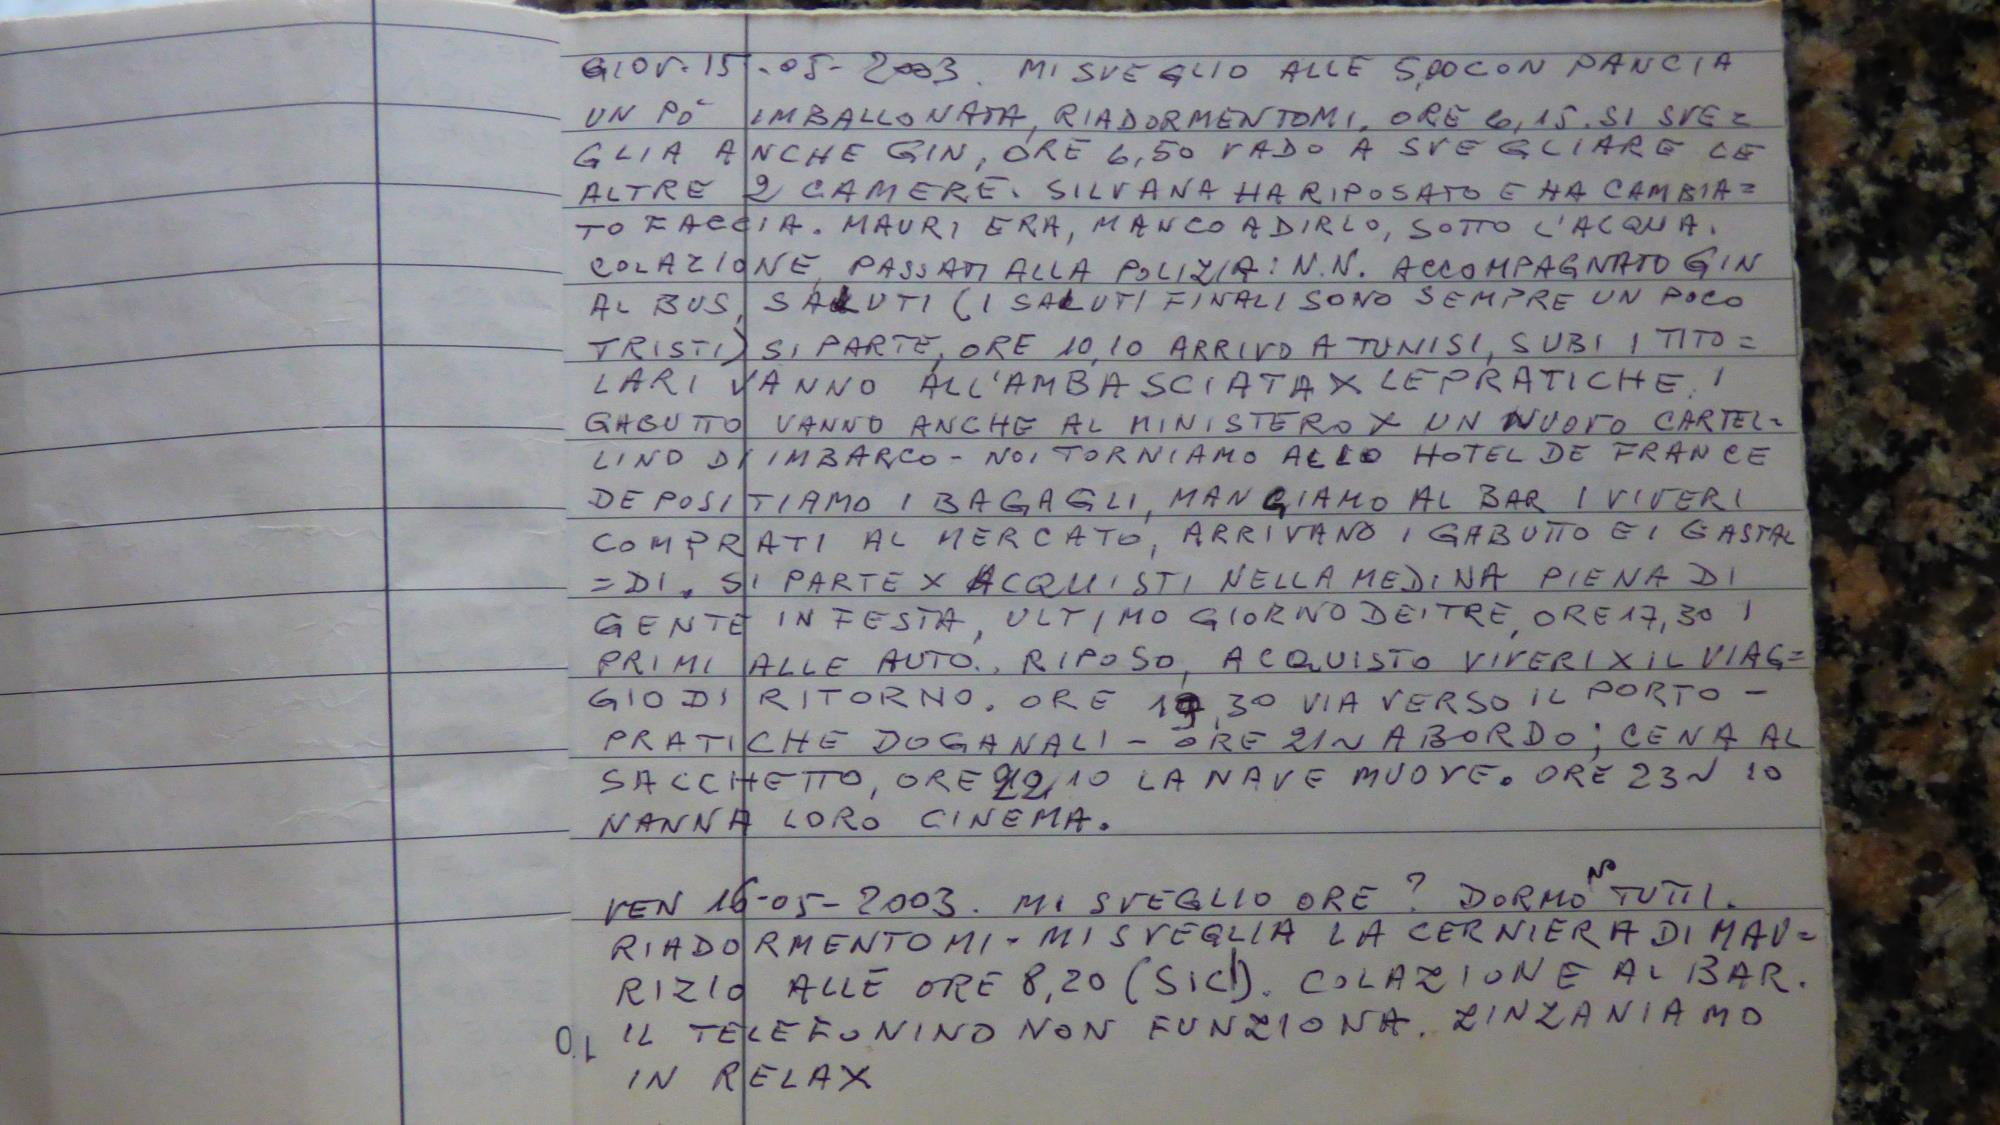 GIOV. 15-05-2003. MI SVEGLIO ALLE 5,00 CON PANCIA
UN PÒ IMBALLONATA, RIADORMENTOMI. ORE 6,15. SI SVE=
GLIA ANCHE GIN, ORE 6,50 VADO A SVEGLIARE LE
ALTRE 2 CAMERE. SILVANA HA RIPOSATO E HA CAMBIA=
TO FACCIA. MAURI ERA, MANCO A DIRLO, SOTTO L'ACQUA.
COLAZIONE, PASSATI ALLA POLIZIA: N.N. ACCOMPAGNATO GIN
AL BUS, SALUTI (I SALUTI FINALI SONO SEMPRE UN POCO
TRISTI) SI PARTE, ORE 10,10 ARRIVO A TUNISI, SUBI I TITO=
LARI VANNO ALL'AMBASCIATA X LE PRATICHE. I
GABUTTO VANNO ANCHE AL MINISTERO X UN NUOVO CARTEL=
LINO DI IMBARCO - NOI TORNIAMO ALLO HOTEL DE FRANCE
DEPOSITIAMO I BAGAGLI, MANGIAMO AL BAR I VIVERI
COMPRATI AL MERCATO, ARRIVANO I GABUTTO E I GASTAL
=DI. SI PARTE X ACQUISTI NELLA MEDINA PIENA DI
GENTE IN FESTA, ULTIMO GIORNO DEI TRE, ORE 17,30 I
PRIMI ALLE AUTO.. RIPOSO, ACQUISTO VIVERI X IL VIAG=
GIO DI RITORNO. ORE 19,30 VIA VERSO IL PORTO -
PRATICHE DOGANALI - ORE 21 ~ A BORDO; CENA AL
SACCHETTO, ORE 22,10 LA NAVE MUOVE. ORE 23 ~ IO
NANNA LORO CINEMA.
VEN 16-05-2003. MI SVEGLIO ORE ? DORMONO TUTTI.
RIADORMENTOMI - MI SVEGLIA LA CERNIERA DI MAU=
RIZIO ALLE ORE 8,20 (SIC!). COLAZIONE AL BAR.
IL TELEFONINO NON FUNZIONA. ZINZANIAMO
IN RELAX